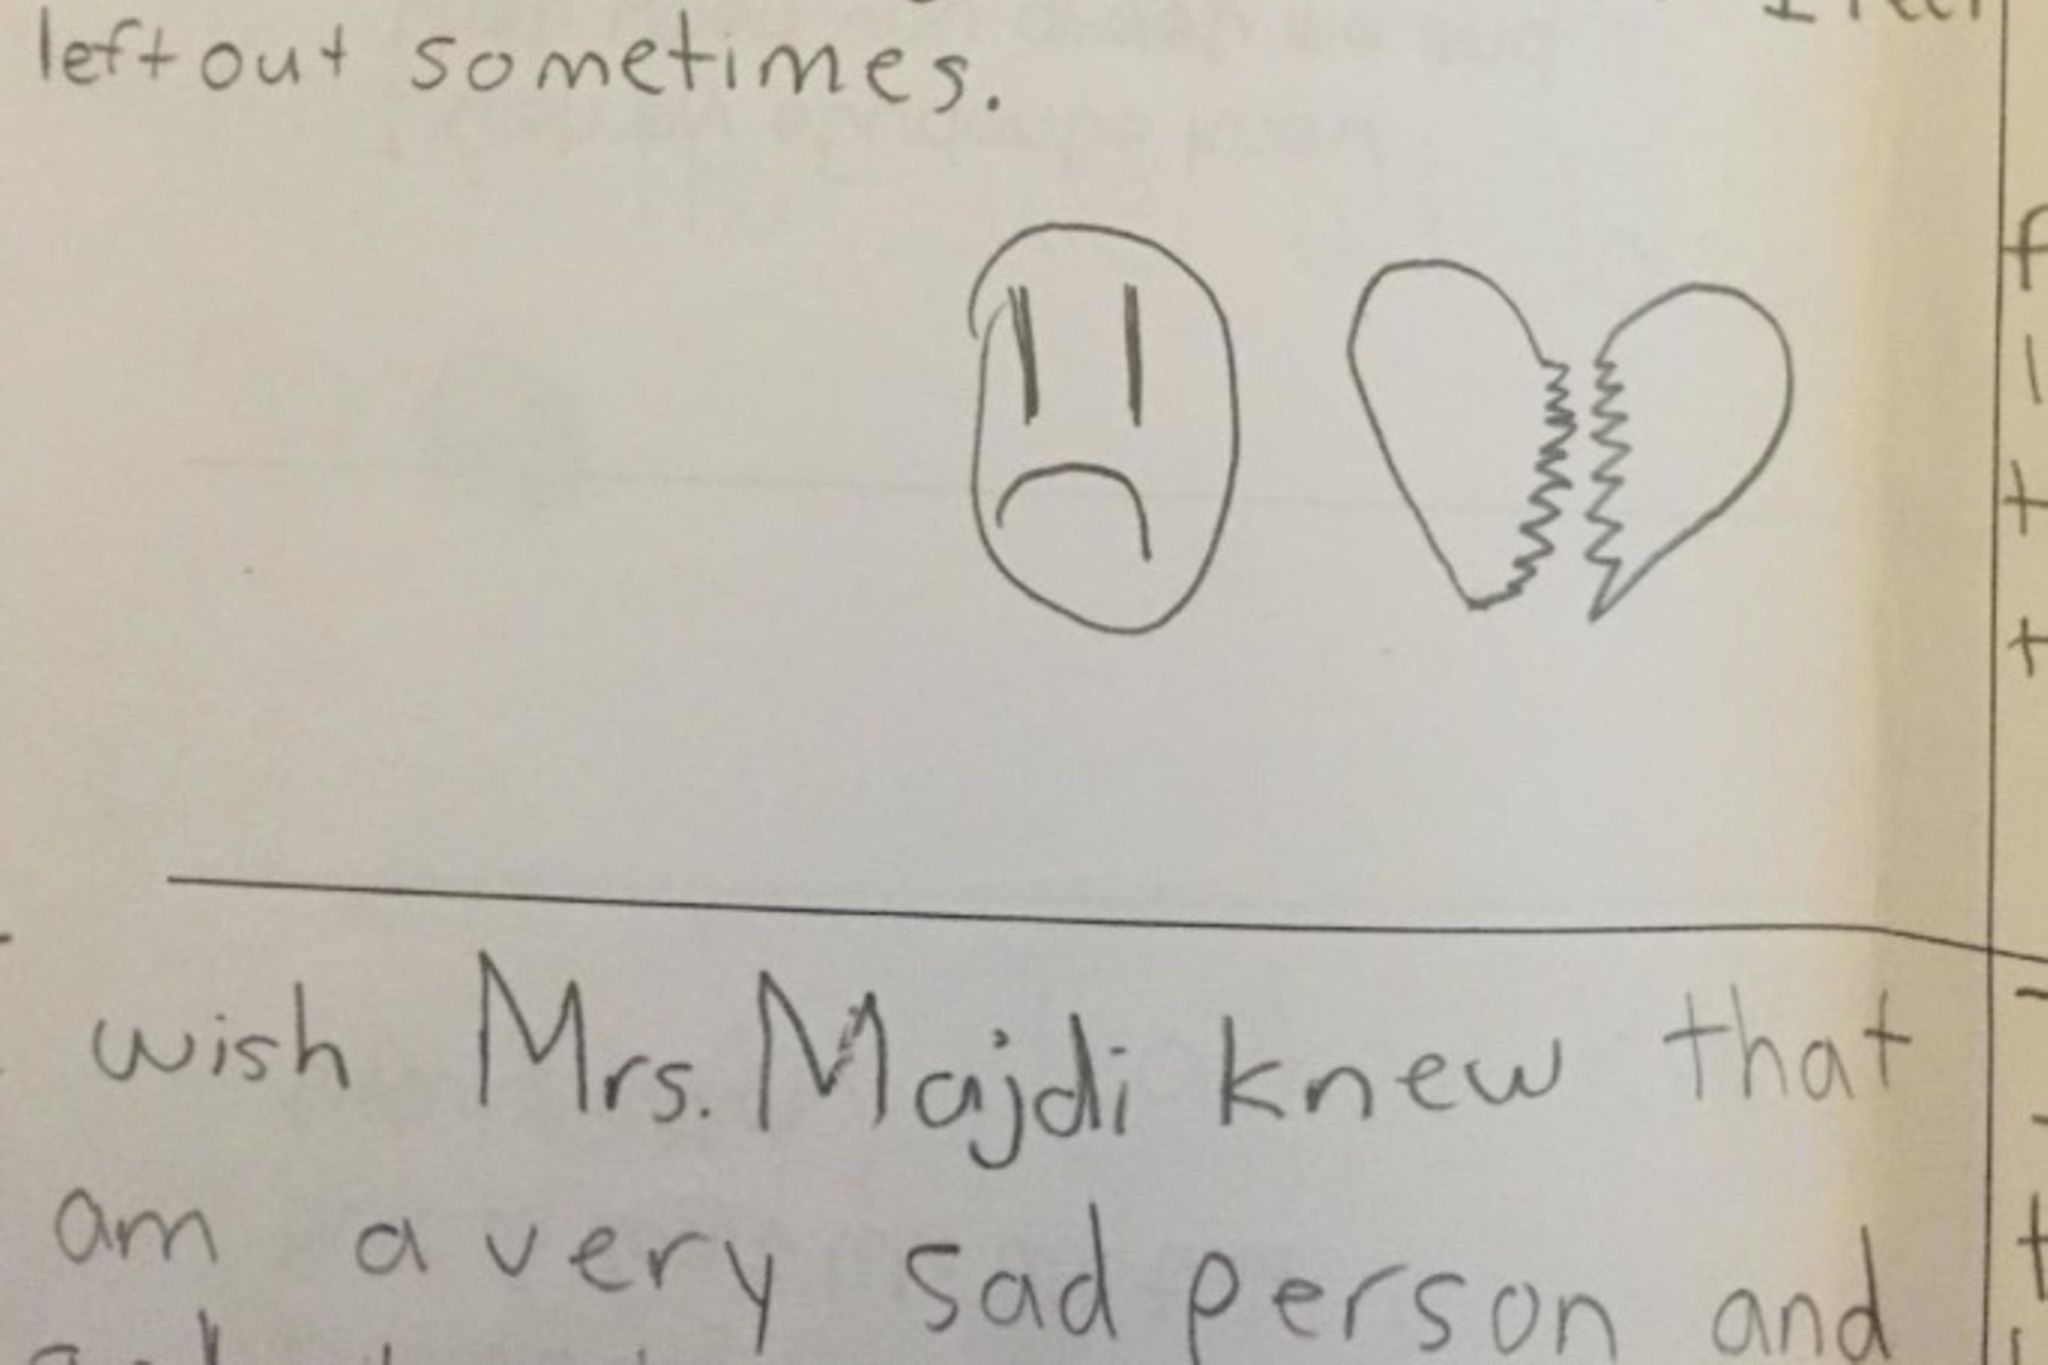 left out sometimes.
wish Mrs. Majdi knew that
am a very sad person and